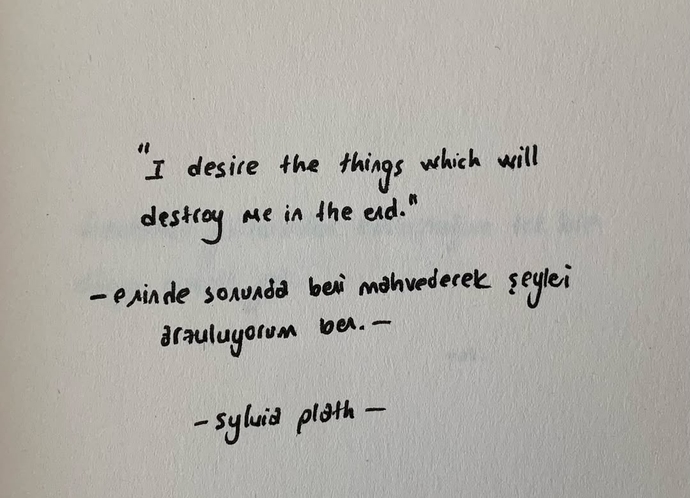 "I desire the things which will
destroy me in the end."
- eninde sonunda beni mahvedecek şeyleri
arzuluyorum ben. -
- sylvia plath -